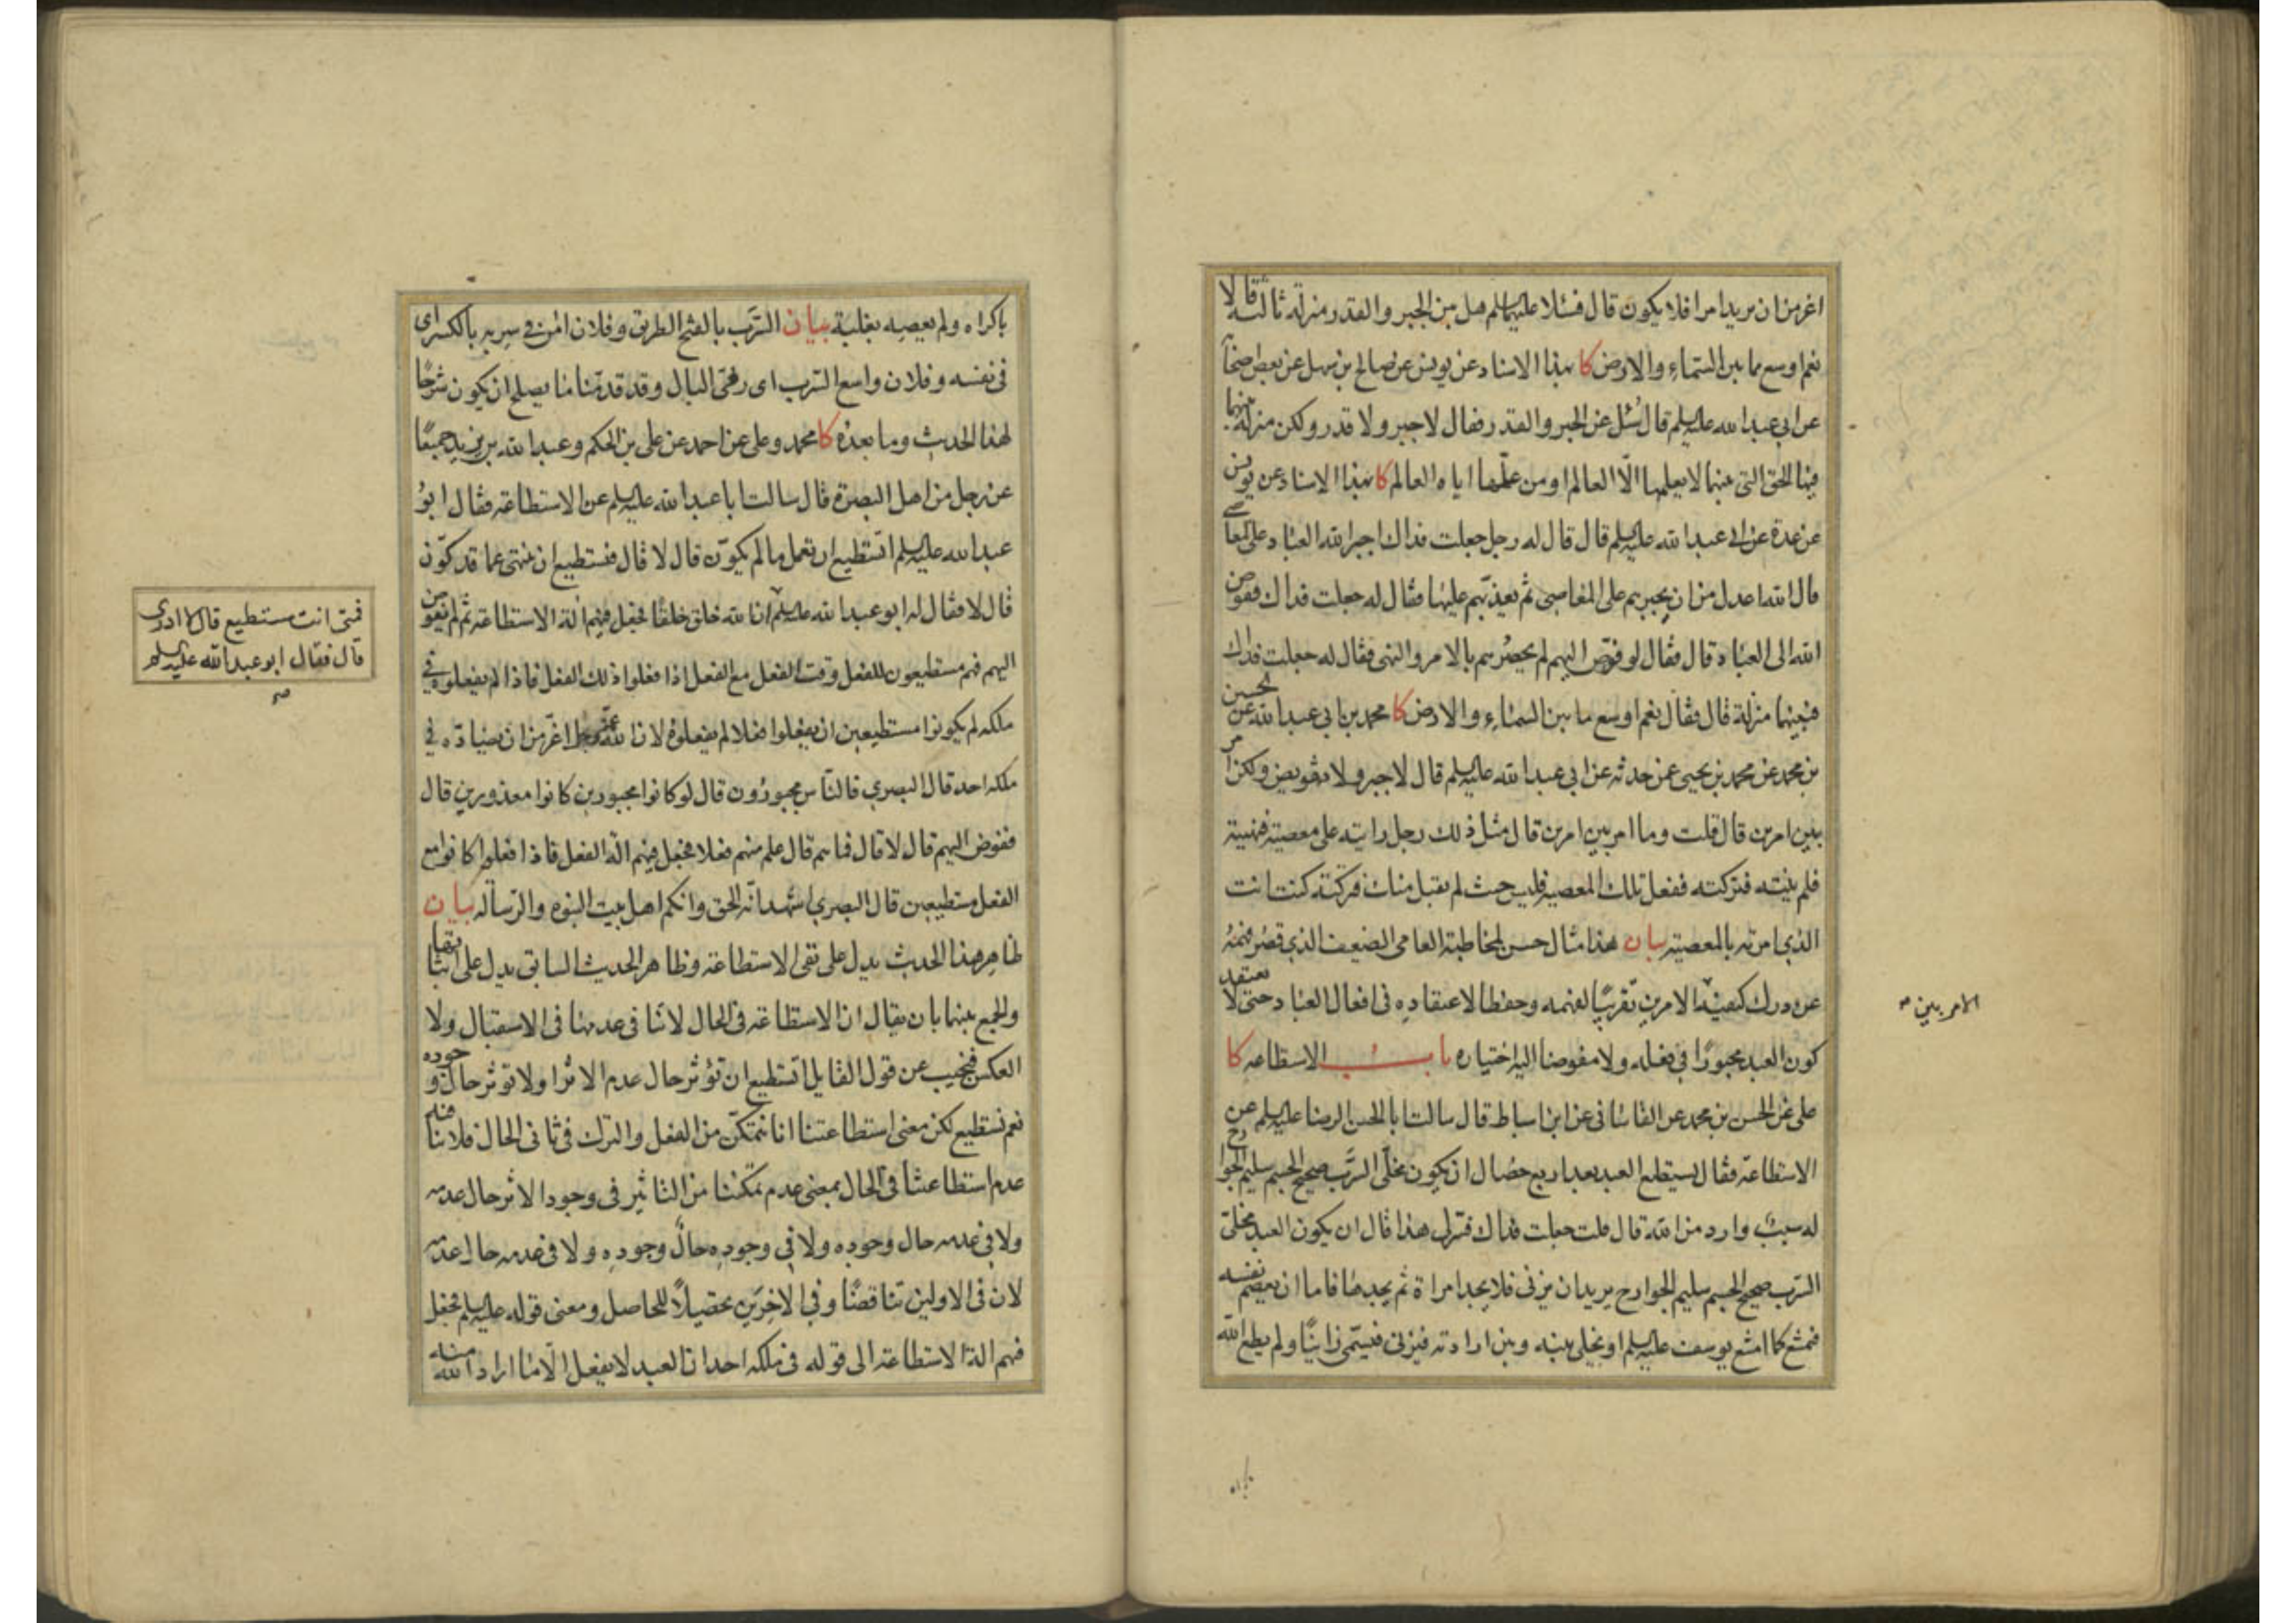 اعز من ان يريد امرا فلا يكون قال فسئلا عليهما السلم هل بين الجبر والقدر منزلة ثالثة قالا
نعم اوسع مما بين السماء والارض كا بهذا الاسناد عن يونس عن صالح بن سهل عن بعض اصحابه
عن ابي عبد الله عليه السلم قال سُئل عن الجبر والقدر فقال لا جبر ولا قدر ولكن منزلة بينهما
فيها الحق التي بينهما لا يعلمها الّا العالم او من علّمها اياه العالم كا بهذا الاسناد عن يونس
عن عدة عن ابي عبد الله عليه السلم قال قال له رجل جعلت فداك اجبر الله العباد على المعاصي
قال الله اعدل من ان يجبرهم على المعاصي ثم يعذبهم عليها فقال له جعلت فداك ففوض
الله الى العباد قال فقال لو فوّض اليهم لم يحصرهم بالامر والنهى فقال له جعلت فداك
فبينهما منزلة قال فقال نعم اوسع ما بين السماء والارض كا محمد بن ابي عبد الله عن الحسين
بن محمد عن محمد بن يحيى عمن حدثه عن ابي عبد الله عليه السلم قال لا جبر ولا تفويض ولكن امر
بين امرين قال قلت وما امر بين امرين قال مثل ذلك رجل رايته على معصية فنهيته
فلم ينته فتركته ففعل تلك المعصية فليس حيث لم يقبل منك فتركته كنت انت
الذي امرته بالمعصية بيان هذا مثال حسن لمخاطبة العامى الضعيف الذي قصر فهمه
عن درك كيفية الامرين تقريبًا لفهمه وحفظا لاعتقاده في افعال العباد حتى لا يعتقد
الامر بين
كون العبد مجبورًا في فعله ولا مفوضا اليه اختياره باب الاستطاعه كا
على عن الحسن بن محمد عن القاساني عن ابن اسباط قال سالت ابا الحسن الرضا عليه السلم عن
الاستطاعة فقال يستطيع العبد بعد اربع خصال ان يكون مخلّى السَّرب صحيح الجسم سليم الجوارح
له سبب وارد من الله قال قلت جعلت فداك فسّر لى هذا قال ان يكون العبد مخلى
السرب صحيح الجسم سليم الجوارح يريد ان يزنى فلا يجد امراة ثم يجدها فاما ان يعصم نفسه
فيمتنع كما امتنع يوسف عليه السلم او يخلى بينه وبين ارادته فيزنى فيسمى زانيًا ولم يطع الله
باكراه ولم يعصه بغلبة بيان السَّرب بالفتح الطريق وفلان امن في سربه بالكسر اى
في نفسه وفلان واسع السرب اى رخى البال وقد قدمنا ما يصلح ان يكون شرحًا
لهذا الحديث وما بعده كا محمد وعلى عن احمد عن على بن الحكم وعبد الله بن يزيد جميعًا
عن رجل من اهل البصرة قال سالت ابا عبد الله عليه السلم عن الاستطاعة فقال ابو
عبد الله عليه السلم اتستطيع ان تعمل ما لم يكوّن قال لا قال فتستطيع ان تنتهى عما قد كوّن
قال لا فقال له ابو عبد الله عليه السلم ان الله خلق خلقًا فجعل فيهم الة الاستطاعة ثم لم يفوض
فمتى انت مستطيع قال لا ادرى
قال فقال ابو عبد الله عليه السلم
صح
اليهم فهم مستطيعون للفعل وقت الفعل مع الفعل اذا فعلوا ذلك الفعل فاذا لم يفعلوه في
ملكه لم يكونوا مستطيعين ان يفعلوا فعلا لم يفعلوه لان الله عز وجل اعزّ من ان يضادّه في
ملكه احد قال البصري فالنّاس مجبورُون قال لو كانوا مجبورين كانوا معذورين قال
ففوض اليهم قال لا قال فما هم قال علم منهم فعلا فجعل فيهم الة الفعل فاذا فعلوا كانوا مع
الفعل مستطيعين قال البصري اشهد انّه الحق وانكم اهل بيت النبوه والرّساله بيان
ظاهر هذا الحديث يدل على نفى الاستطاعة وظاهر الحديث السابق يدل على اثباتها
والجمع بينهما بان يقال ان الاستطاعة في الحال لا تنافى عدمها في الاستقبال ولا
العكس فنجيب عن قول القايل اتستطيع ان تؤثر حال عدم الاثر او لا توثر حال وجوده
نعم نستطيع لكن معنى استطاعتنا انا نتمكّن من الفعل والترك في ثانى الحال فلا ينافيه
عدم استطاعتنا في الحال بمعنى عدم تمكننا من التاثير فى وجود الاثر حال عدمه
ولا في عدمه حال وجوده ولا في وجوده حال وجوده ولا في عدمه حال عدمه
لان في الاولين تناقضًا وفي الاخرَين تحصيلاً للحاصل ومعنى قوله عليه السلم فجعل
فيهم الة الاستطاعة الى قوله في ملكه احد ان العبد لا يفعل الّا ما اراد الله منه